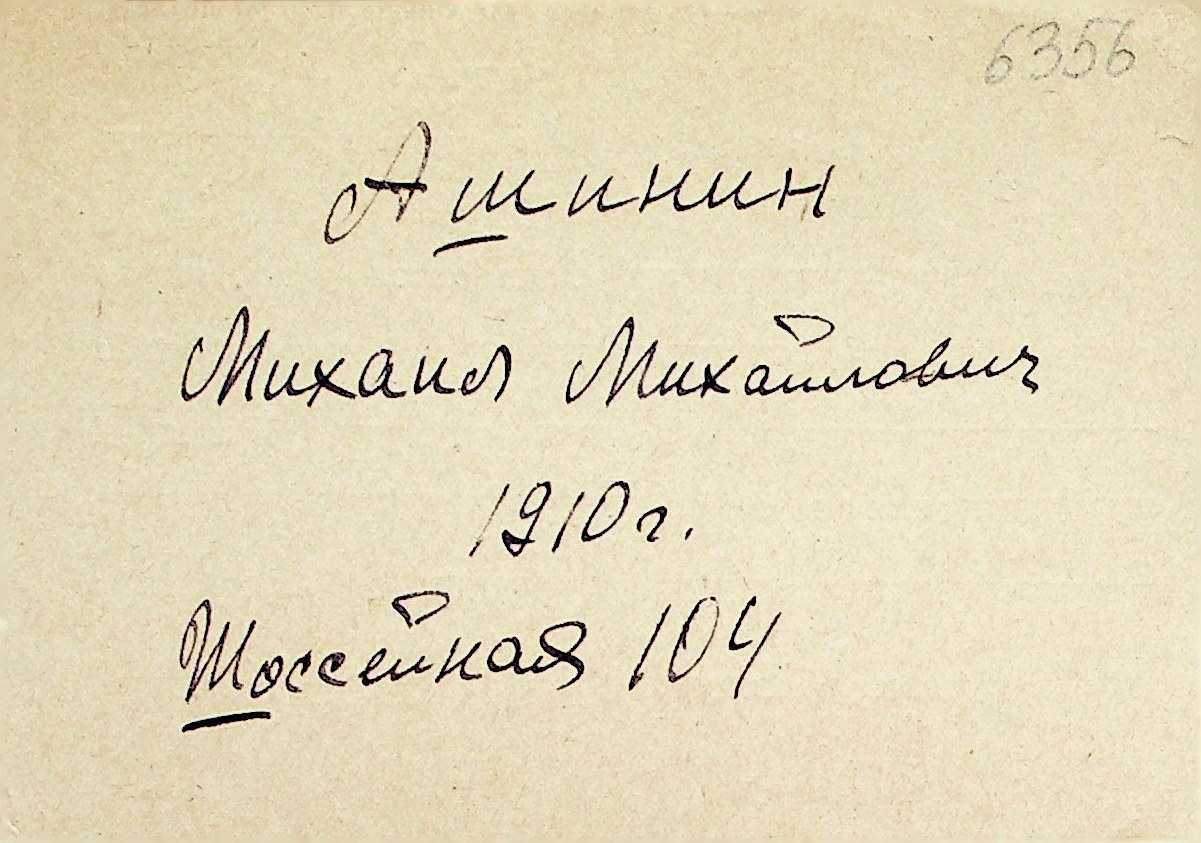 6356
Ашинин
Михаил Михайлович
1910 г.
Шоссейная 104